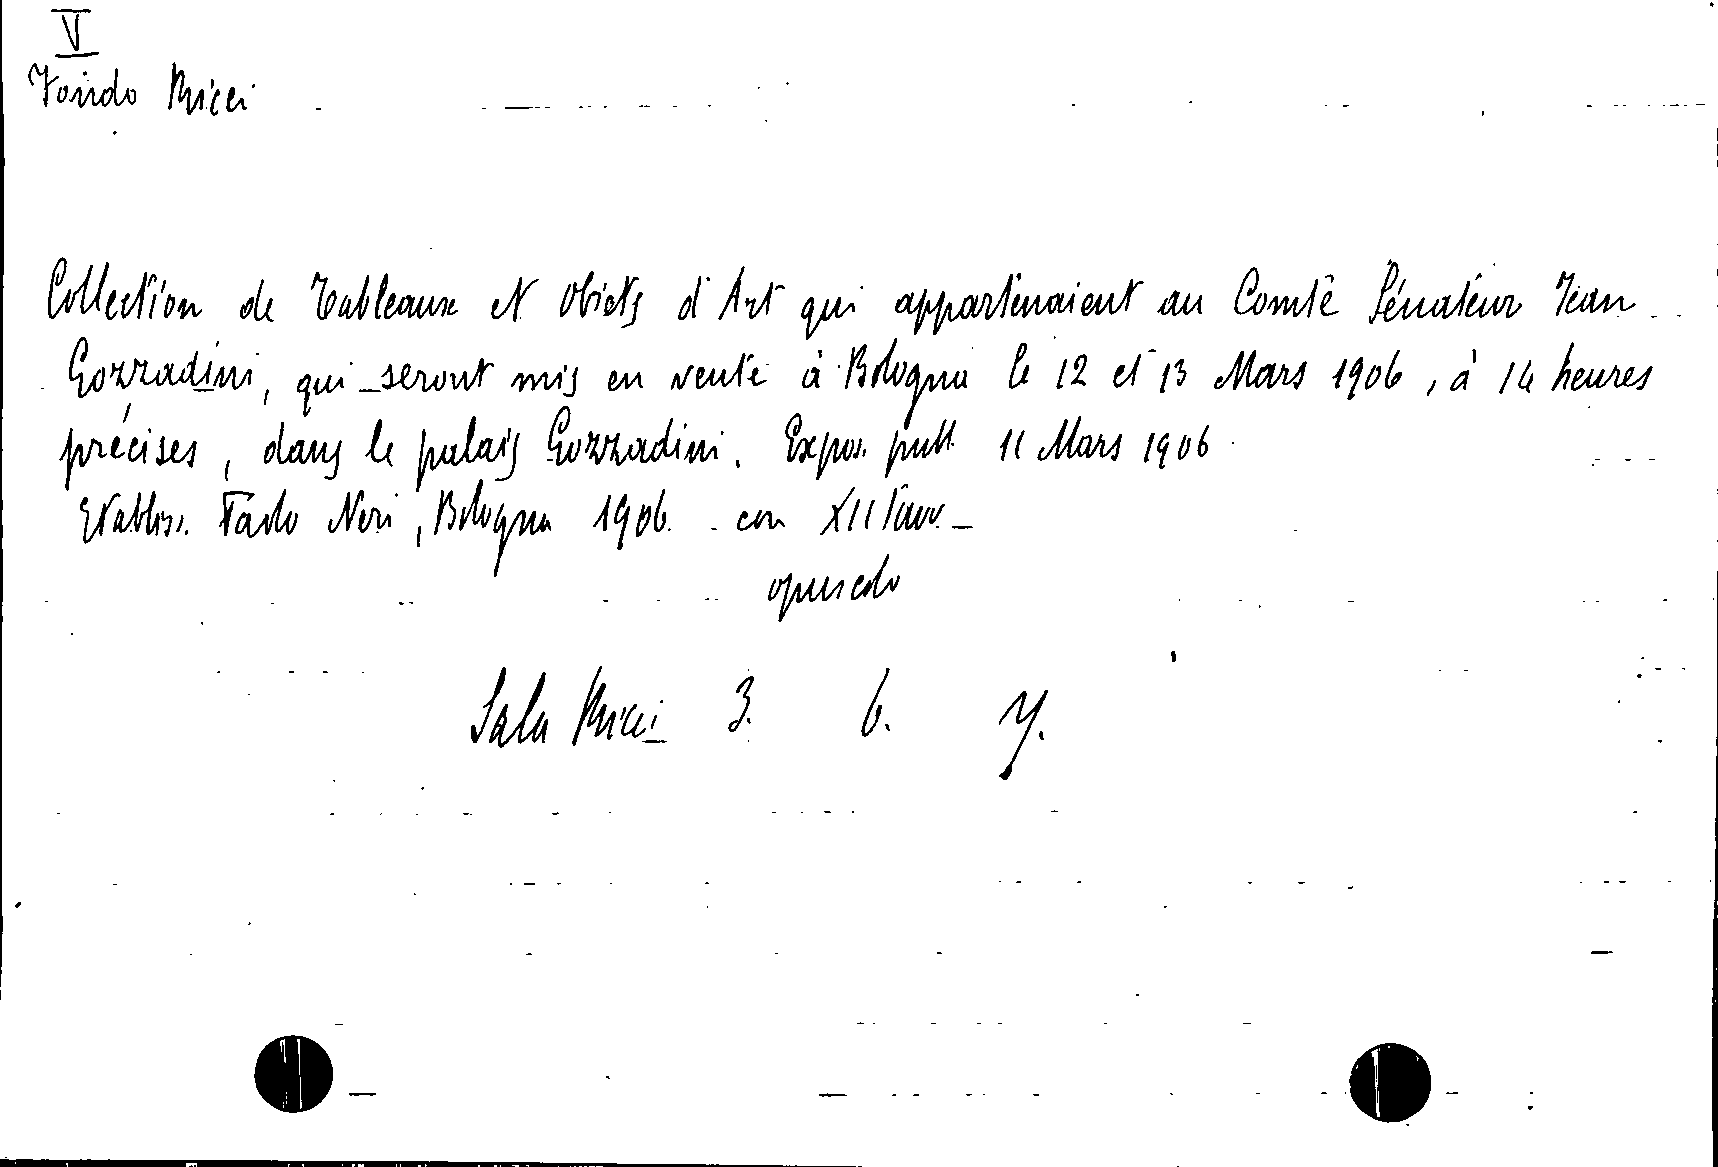 V
Fondo Ricci
Collection de Tableaux et Obiets d'Art qui appartenaient au Comte Sénateur Jean
Gozzadini, qui seront mis en vente à Bologna le 12 et 13 Mars 1906, à 14 heures
précises, dans le palais Gozzadini. Expos. publ. 11 Mars 1906
Etabliss. Paolo Neri, Bologna 1906. con XII tavv.
opuscolo
Sala Ricci 3. 6. 7.